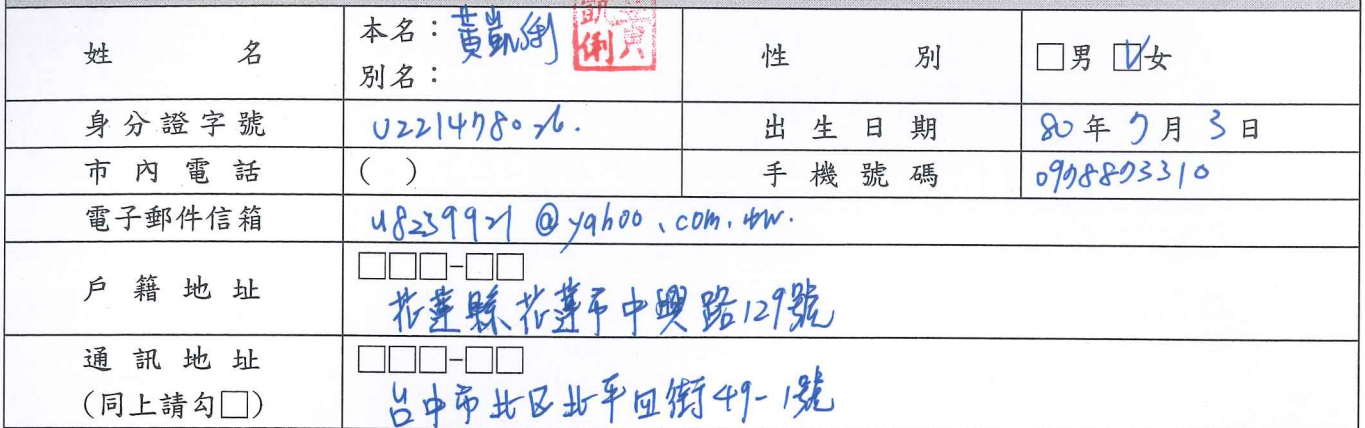 姓名 本名：黃凱俐 凱俐黃 性別 □男 ☑女
別名：
身分證字號 U221478026. 出生日期 80年7月3日
市內電話 ( ) 手機號碼 0978873310
電子郵件信箱 u8239921@yahoo.com.tw.
戶籍地址 □□□-□□
花蓮縣花蓮市中興路129號
通訊地址 □□□-□□
(同上請勾□) 台中市北区北平四街49-1號